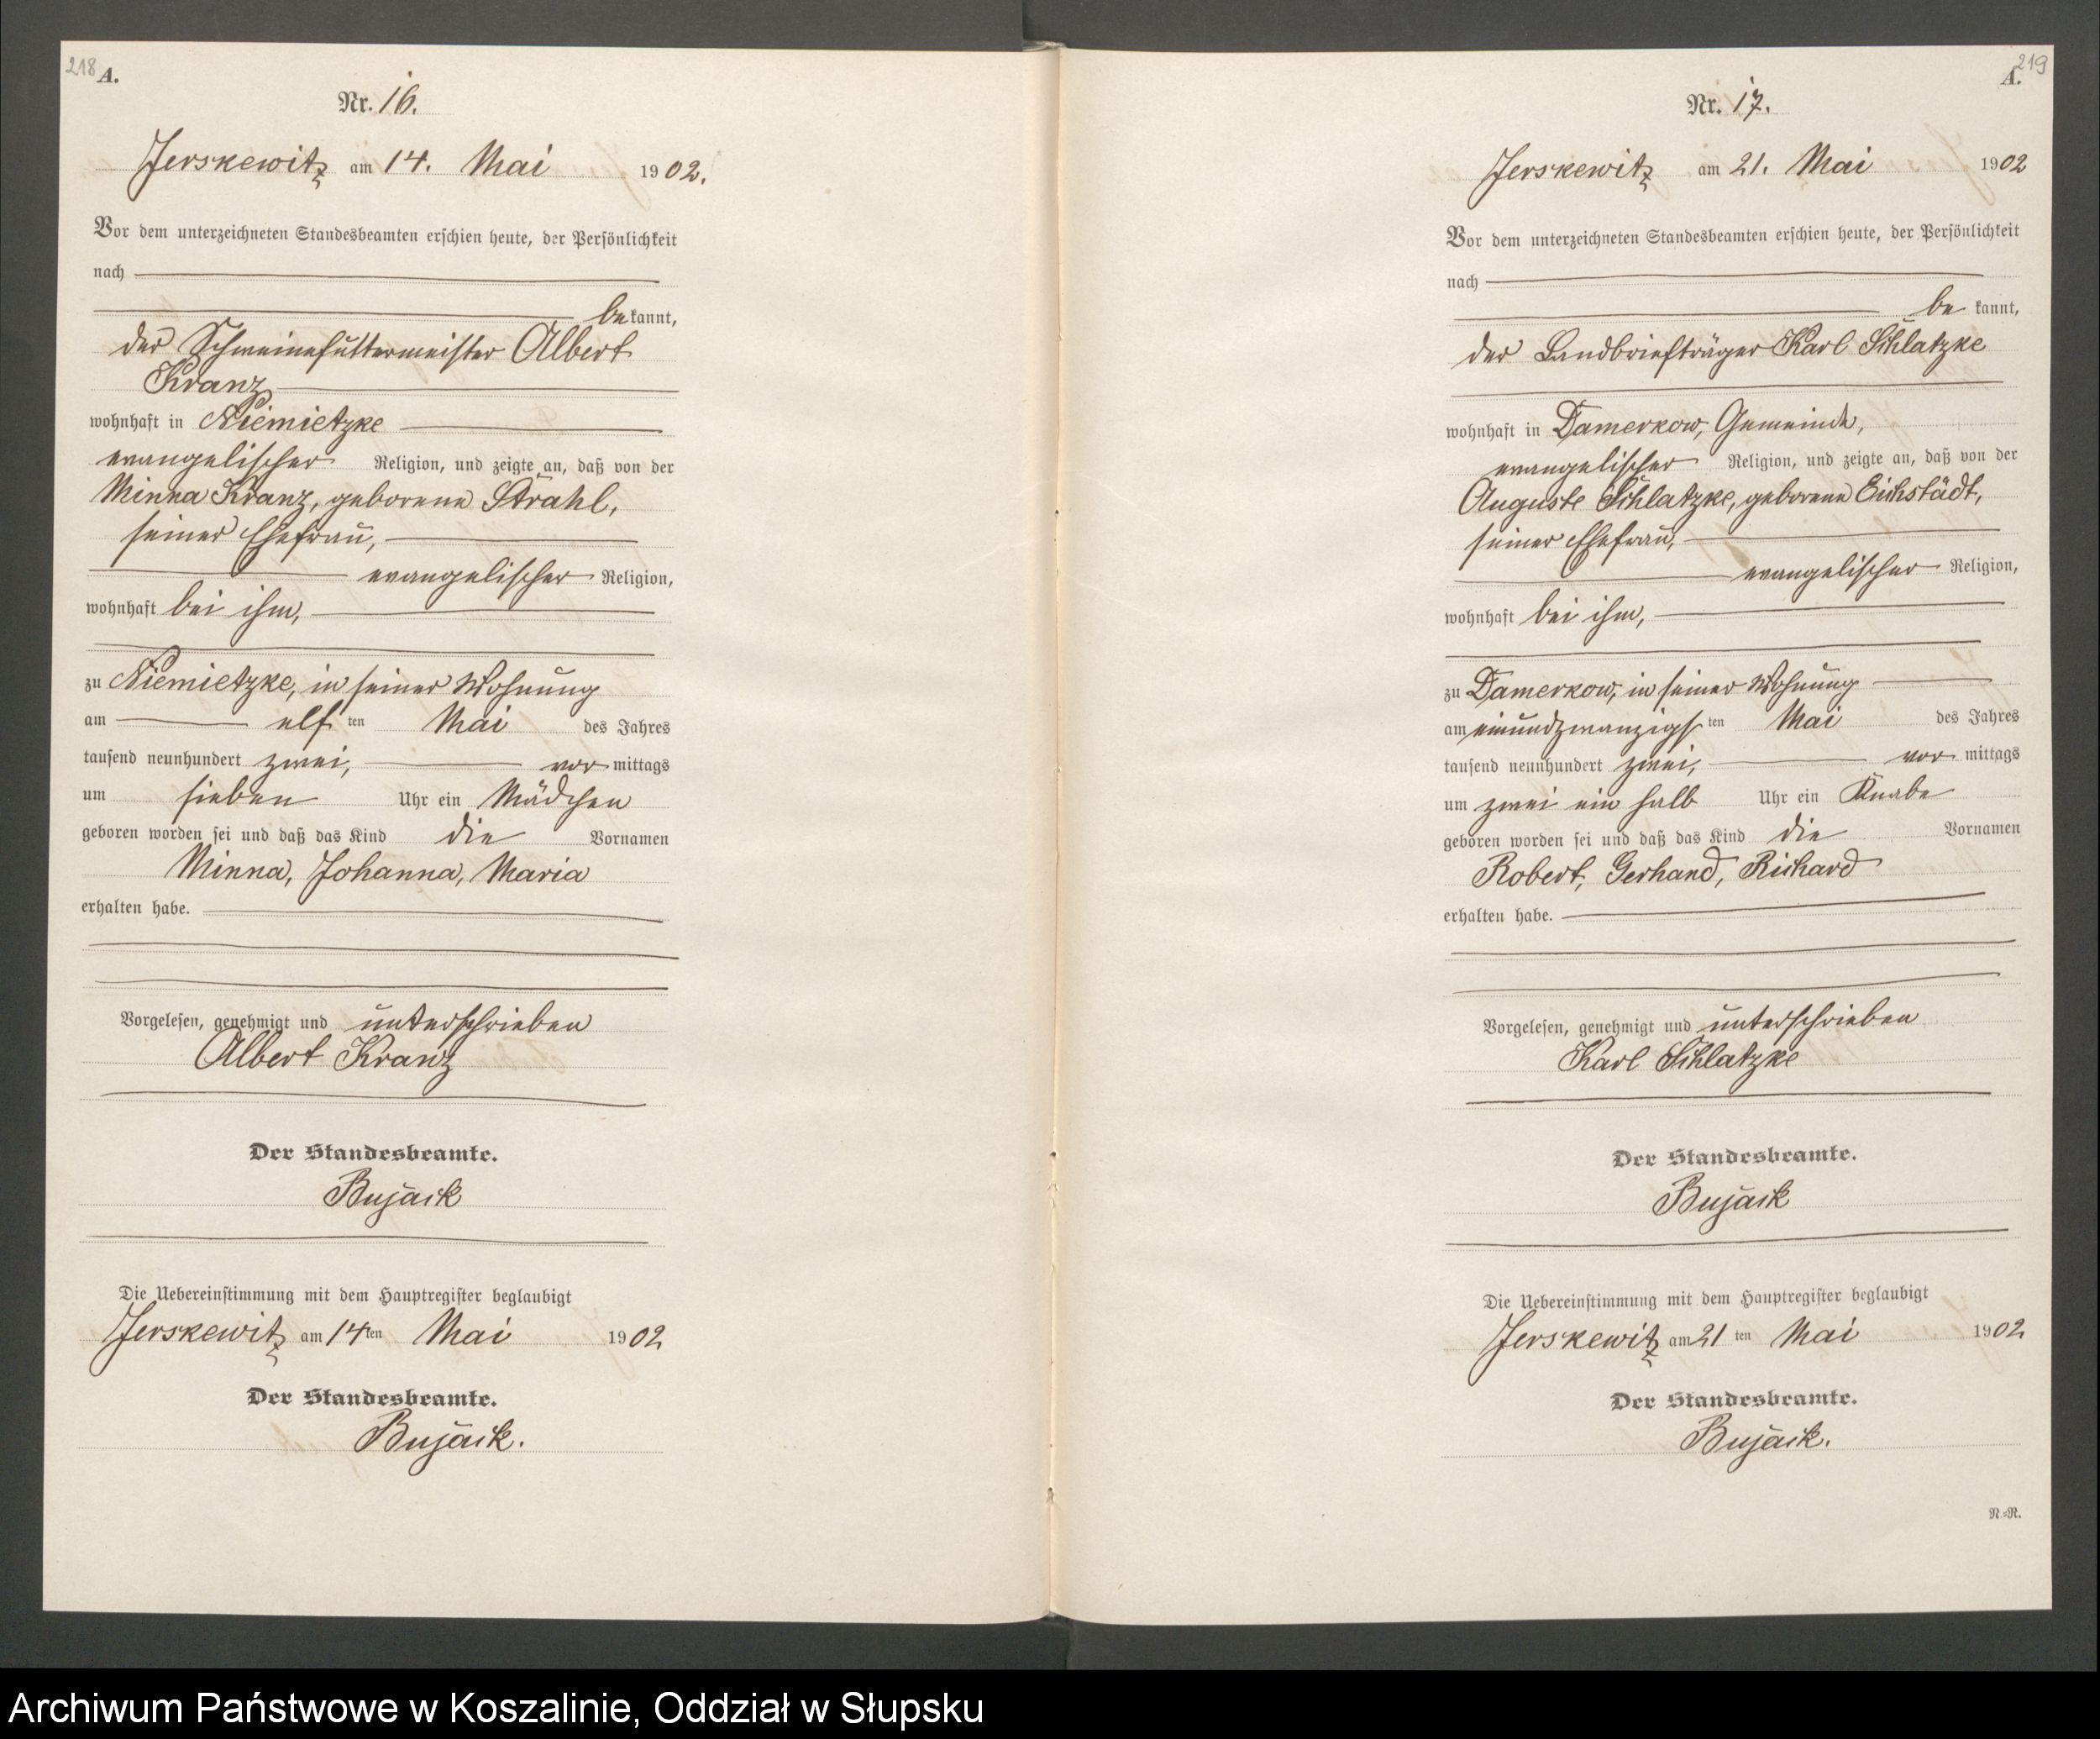 218 A.
Nr. 16.
Jerskewitz am 14. Mai 1902.
Vor dem unterzeichneten Standesbeamten erschien heute, der Persönlichkeit
nach
bekannt,
der Schweinefuttermeister Albert
Kranz
wohnhaft in Niemietzke
evangelischer Religion, und zeigte an, daß von der
Minna Kranz, geborene Strahl,
seiner Ehefrau,
evangelischer Religion,
wohnhaft bei ihm,
zu Niemietzke, in seiner Wohnung
am elf ten Mai des Jahres
tausend neunhundert zwei, vor mittags
um sieben Uhr ein Mädchen
geboren worden sei und daß das Kind die Vornamen
Minna, Johanna, Maria
erhalten habe.
Vorgelesen, genehmigt und unterschrieben
Albert Kranz
Der Standesbeamte.
Bujack
Die Uebereinstimmung mit dem Hauptregister beglaubigt
Jerskewitz am 14ten Mai 1902
Der Standesbeamte.
Bujack.
219
A.
Nr. 17.
Jerskewitz am 21. Mai 1902
Vor dem unterzeichneten Standesbeamten erschien heute, der Persönlichkeit
nach
be kannt,
der Landbriefträger Karl Schlatzke
wohnhaft in Damerkow, Gemeinde,
evangelischer Religion, und zeigte an, daß von der
Auguste Schlatzke, geborene Eichstädt,
seiner Ehefrau,
evangelischer Religion,
wohnhaft bei ihm,
zu Damerkow, in seiner Wohnung
am einundzwanzigs ten Mai des Jahres
tausend neunhundert zwei, vor mittags
um zwei ein halb Uhr ein Knabe
geboren worden sei und daß das Kind die Vornamen
Robert, Gerhand, Richard
erhalten habe.
Vorgelesen, genehmigt und unterschrieben
Karl Schlatzke
Der Standesbeamte.
Bujack
Die Uebereinstimmung mit dem Hauptregister beglaubigt
Jerskewitz am 21 ten Mai 1902
Der Standesbeamte.
Bujack.
N.=R.
Archiwum Państwowe w Koszalinie, Oddział w Słupsku